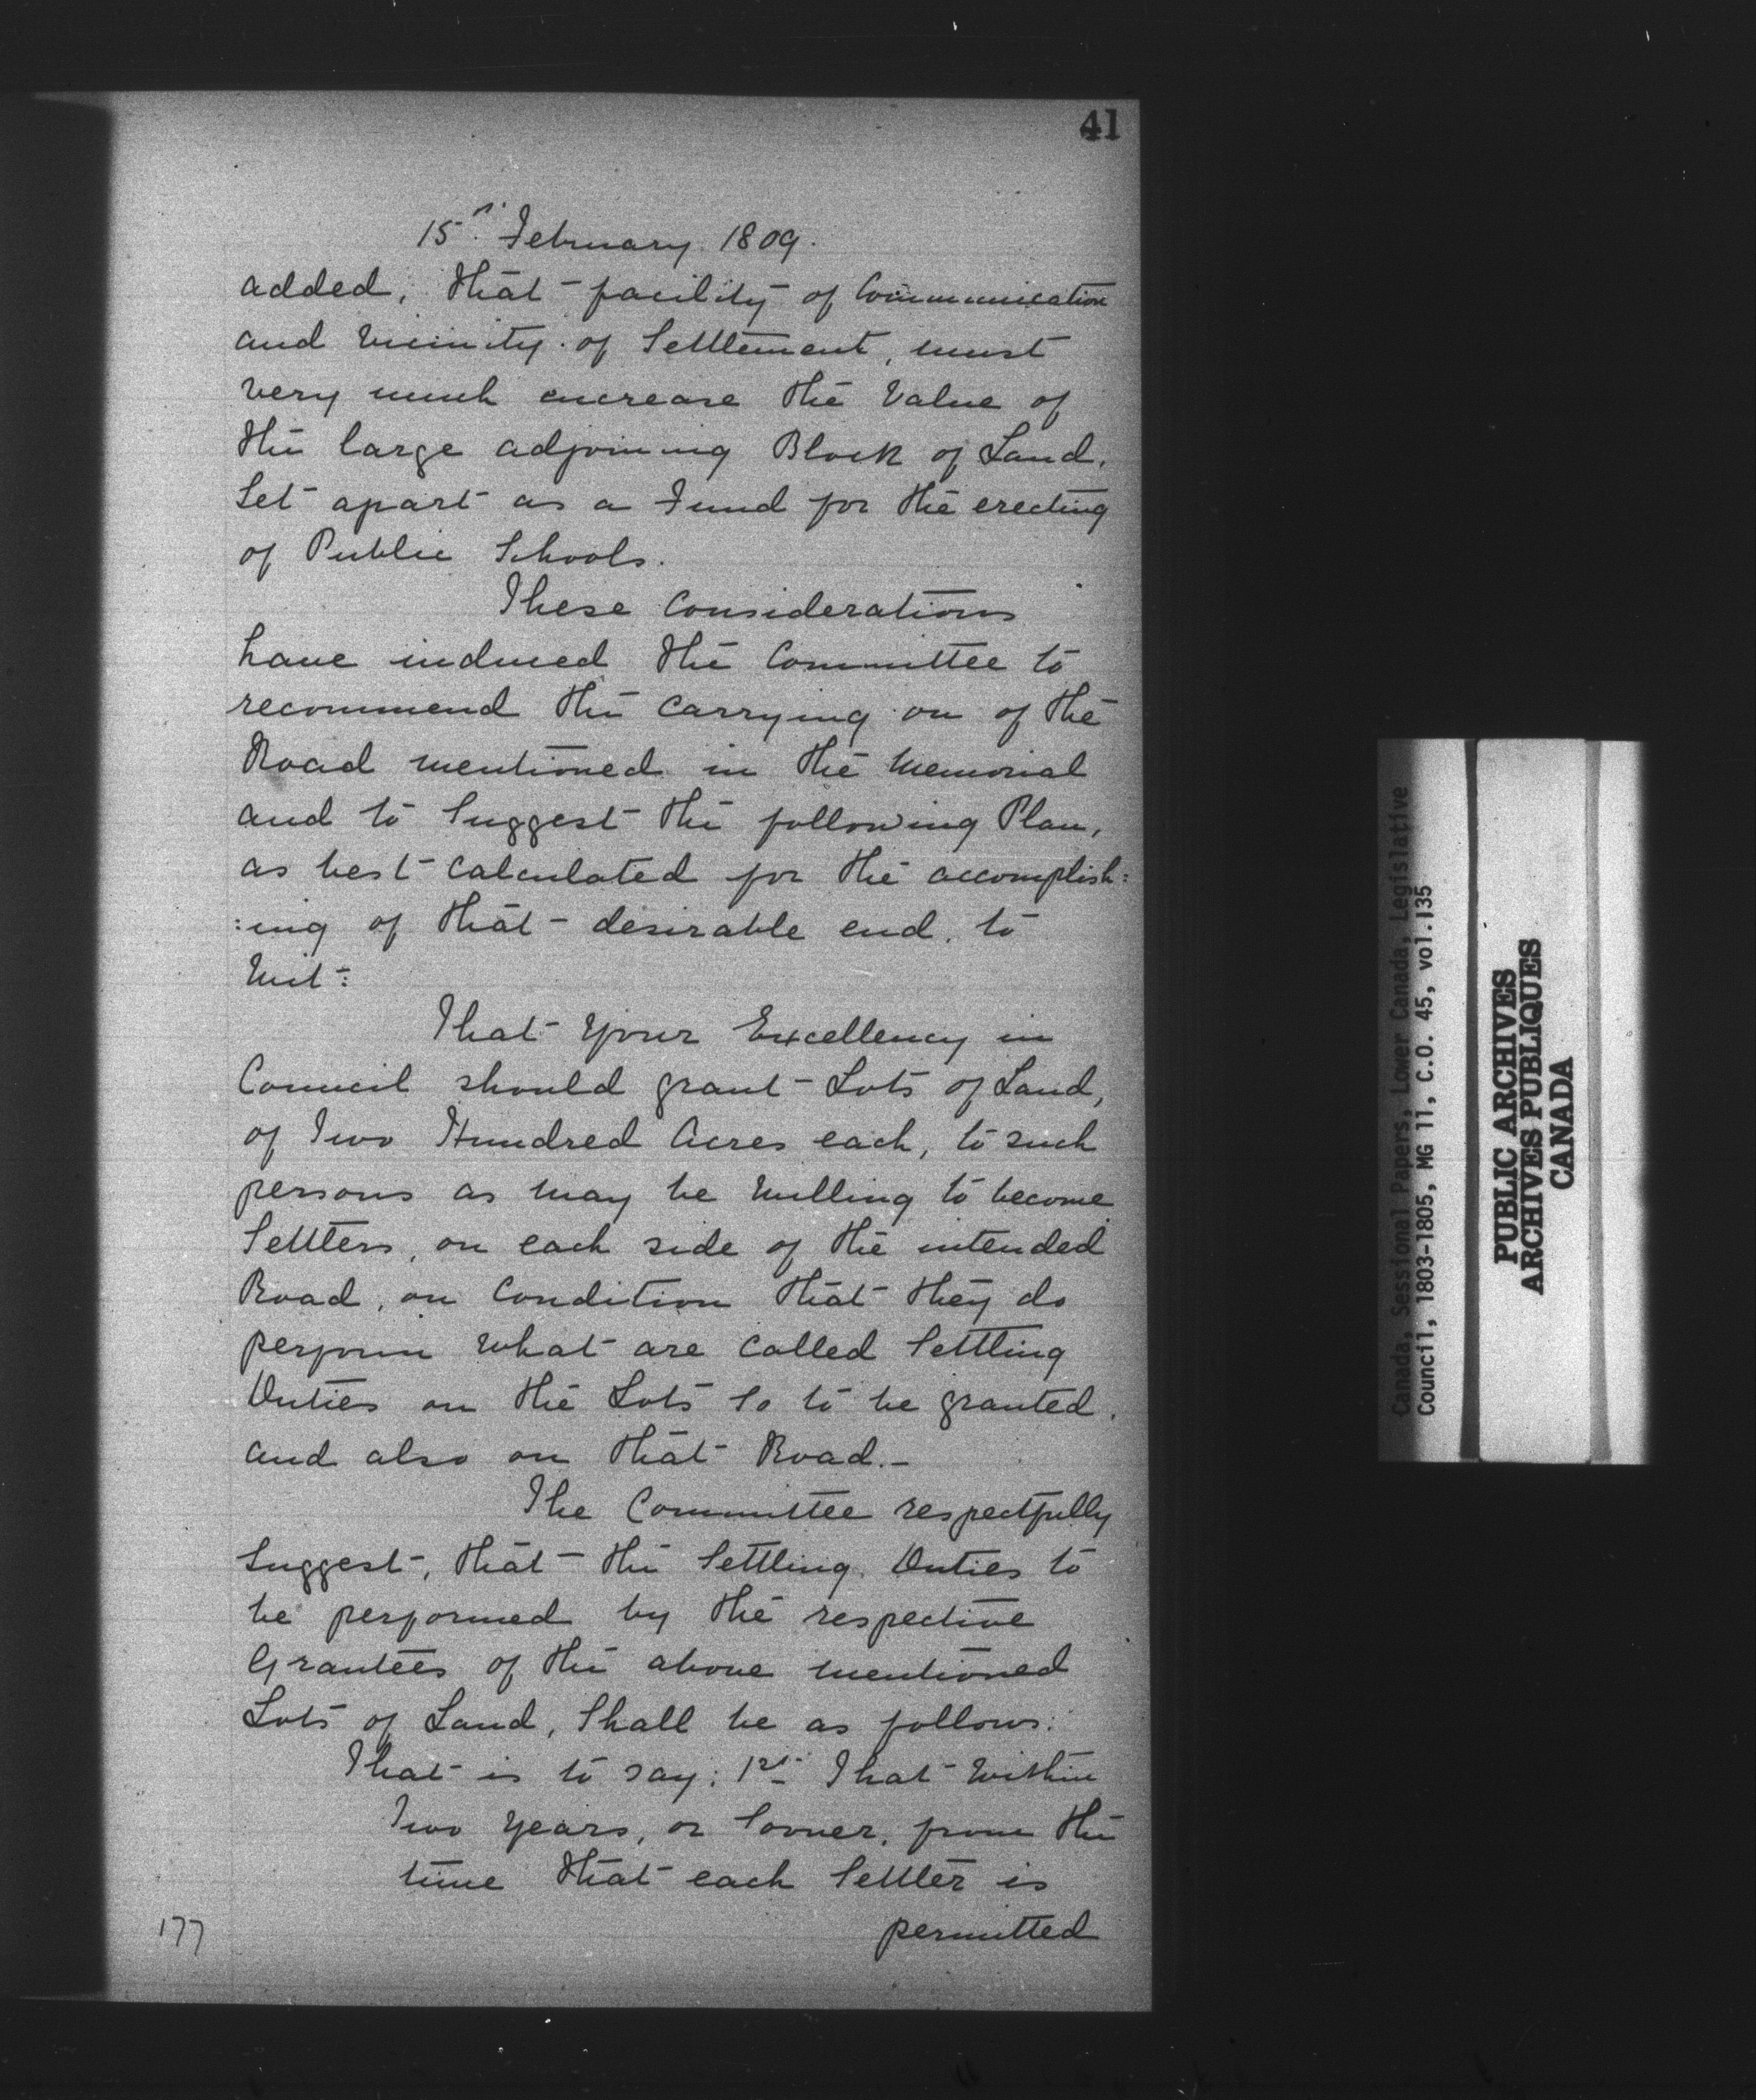 41
15th February 1809.
added, that facility of Communication
and vicinity of Settlement, must
very much encrease the Value of
the large adjoining Block of Land,
Set apart as a Fund for the erecting
of Public Schools.
These Considerations
have induced the Committee to
recommend the carrying on of the
Road mentioned in the Memorial
and to Suggest the following Plan,
as best calculated for the accomplish:
:ing of that desirable end, to
Wit:
That Your Excellency in
Council should grant Lots of Land,
of Two Hundred Acres each, to such
persons as may be willing to become
Settlers, on each side of the intended
Road, on Condition that they do
perform what are called Settling
Duties on the Lots So to be granted,
and also on that Road.-
The Committee respectfully
Suggest, that the Settling Duties to
be performed by the respective
Grantees of the above mentioned
Lots of Land, Shall be as follows:
That is to say: 1st That within
Two Years, or Sooner, from the
time that each Settler is
permitted
177
Canada, Sessional Papers, Lower Canada, Legislative
Council, 1803-1805, MG 11, C.O. 45, vol.135
PUBLIC ARCHIVES
ARCHIVES PUBLIQUES
CANADA